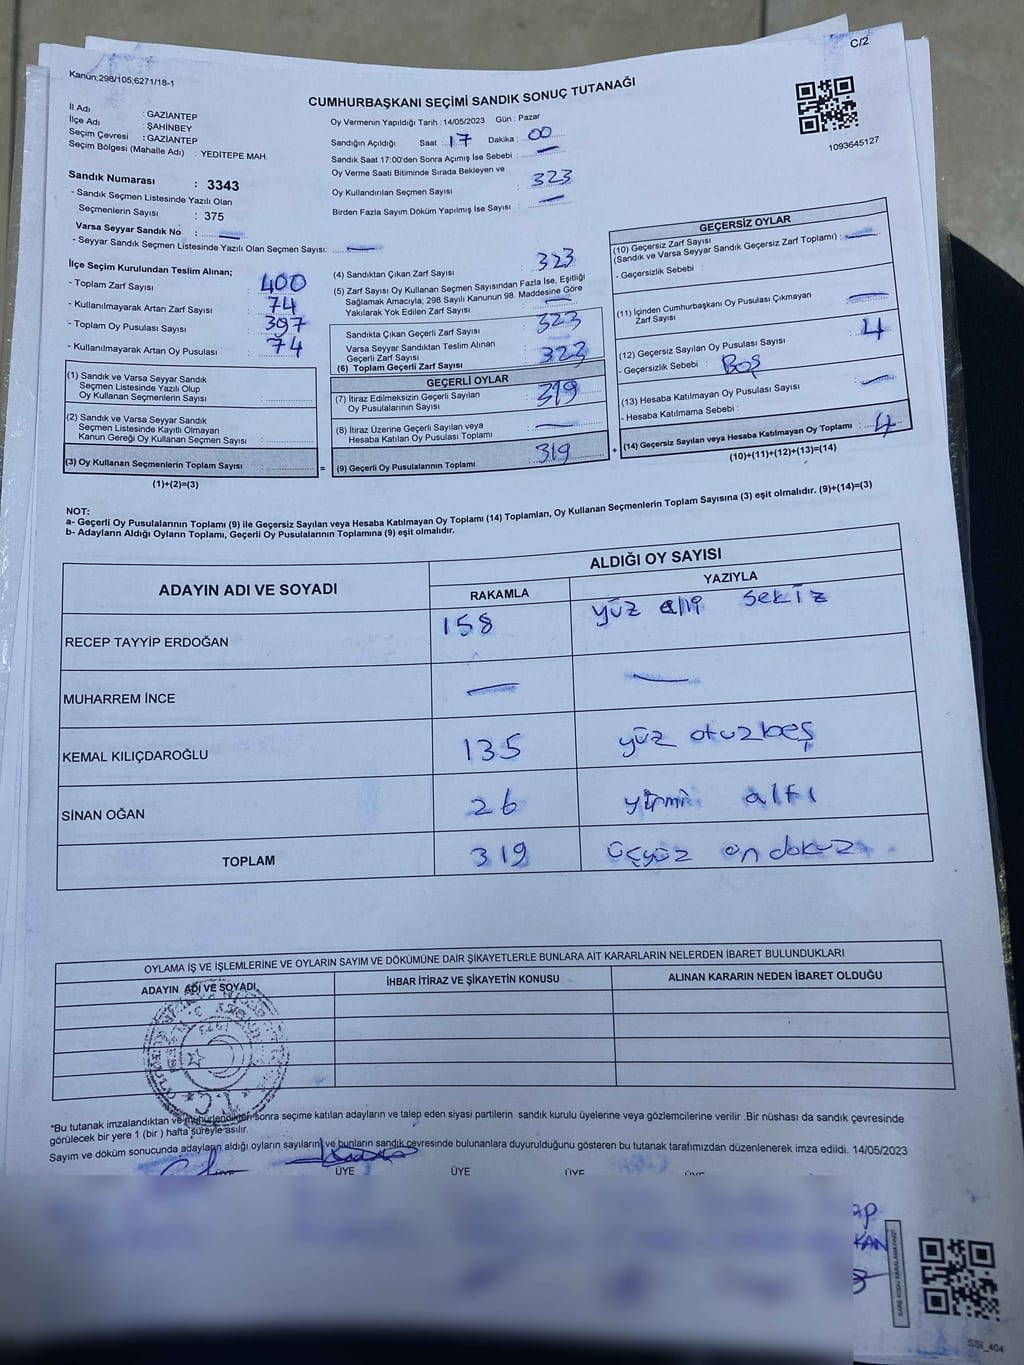 C/2
Kanun:298/105;6271/18-1
CUMHURBAŞKANI SEÇİMİ SANDIK SONUÇ TUTANAĞI
İl Adı : GAZİANTEP
İlçe Adı : ŞAHİNBEY
Seçim Çevresi : GAZİANTEP
Seçim Bölgesi (Mahalle Adı) : YEDİTEPE MAH.
Sandık Numarası : 3343
- Sandık Seçmen Listesinde Yazılı Olan
Seçmenlerin Sayısı : 375
Varsa Seyyar Sandık No : —
- Seyyar Sandık Seçmen Listesinde Yazılı Olan Seçmen Sayısı: —
Oy Vermenin Yapıldığı Tarih : 14/05/2023 Gün : Pazar
Sandığın Açıldığı Saat : 17 Dakika : 00
Sandık Saat 17:00'den Sonra Açımış İse Sebebi : —
Oy Verme Saati Bitiminde Sırada Bekleyen ve
Oy Kullandırılan Seçmen Sayısı : 323
Birden Fazla Sayım Döküm Yapılmış İse Sayısı : —
1093645127
İlçe Seçim Kurulundan Teslim Alınan;
- Toplam Zarf Sayısı : 400
- Kullanılmayarak Artan Zarf Sayısı : 74
- Toplam Oy Pusulası Sayısı : 397
- Kullanılmayarak Artan Oy Pusulası : 74
(1) Sandık ve Varsa Seyyar Sandık
Seçmen Listesinde Yazılı Olup
Oy Kullanan Seçmenlerin Sayısı :
(2) Sandık ve Varsa Seyyar Sandık
Seçmen Listesinde Kayıtlı Olmayan
Kanun Gereği Oy Kullanan Seçmen Sayısı :
(3) Oy Kullanan Seçmenlerin Toplam Sayısı :
(1)+(2)=(3)
(4) Sandıktan Çıkan Zarf Sayısı : 323
(5) Zarf Sayısı Oy Kullanan Seçmen Sayısından Fazla İse, Eşitliği
Sağlamak Amacıyla; 298 Sayılı Kanunun 98. Maddesine Göre
Yakılarak Yok Edilen Zarf Sayısı : —
Sandıkta Çıkan Geçerli Zarf Sayısı : 323
Varsa Seyyar Sandıktan Teslim Alınan
Geçerli Zarf Sayısı :
(6) Toplam Geçerli Zarf Sayısı : 323
GEÇERLİ OYLAR
(7) İtiraz Edilmeksizin Geçerli Sayılan
Oy Pusulalarının Sayısı : 319
(8) İtiraz Üzerine Geçerli Sayılan veya
Hesaba Katılan Oy Pusulası Toplamı : —
= (9) Geçerli Oy Pusulalarının Toplamı : 319
GEÇERSİZ OYLAR
(10) Geçersiz Zarf Sayısı
(Sandık ve Varsa Seyyar Sandık Geçersiz Zarf Toplamı) : —
- Geçersizlik Sebebi :
(11) İçinden Cumhurbaşkanı Oy Pusulası Çıkmayan
Zarf Sayısı : —
(12) Geçersiz Sayılan Oy Pusulası Sayısı : 4
- Geçersizlik Sebebi : Boş
(13) Hesaba Katılmayan Oy Pusulası Sayısı : —
- Hesaba Katılmama Sebebi :
+ (14) Geçersiz Sayılan veya Hesaba Katılmayan Oy Toplamı : 4
(10)+(11)+(12)+(13)=(14)
NOT:
a- Geçerli Oy Pusulalarının Toplamı (9) ile Geçersiz Sayılan veya Hesaba Katılmayan Oy Toplamı (14) Toplamları, Oy Kullanan Seçmenlerin Toplam Sayısına (3) eşit olmalıdır. (9)+(14)=(3)
b- Adayların Aldığı Oyların Toplamı, Geçerli Oy Pusulalarının Toplamına (9) eşit olmalıdır.
ADAYIN ADI VE SOYADI
ALDIĞI OY SAYISI
RAKAMLA YAZIYLA
RECEP TAYYİP ERDOĞAN 158 yüz elli sekiz
MUHARREM İNCE — —
KEMAL KILIÇDAROĞLU 135 yüz otuzbeş
SİNAN OĞAN 26 yirmi altı
TOPLAM 319 üçyüz ondokuz
OYLAMA İŞ VE İŞLEMLERİNE VE OYLARIN SAYIM VE DÖKÜMÜNE DAİR ŞİKAYETLERLE BUNLARA AİT KARARLARIN NELERDEN İBARET BULUNDUKLARI
ADAYIN ADI VE SOYADI
İHBAR İTİRAZ VE ŞİKAYETİN KONUSU
ALINAN KARARIN NEDEN İBARET OLDUĞU
T.C.
*Bu tutanak imzalandıktan ve mühürlendikten sonra seçime katılan adayların ve talep eden siyasi partilerin sandık kurulu üyelerine veya gözlemcilerine verilir .Bir nüshası da sandık çevresinde
görülecek bir yere 1 (bir ) hafta süreyle asılır.
Sayım ve döküm sonucunda adayların aldığı oyların sayıların ve bunların sandık çevresinde bulunanlara duyurulduğunu gösteren bu tutanak tarafımızdan düzenlenerek imza edildi. 14/05/2023
ÜYE ÜYE ÜYE
KARE KODU KARALAMAYINIZ!
SSI_404